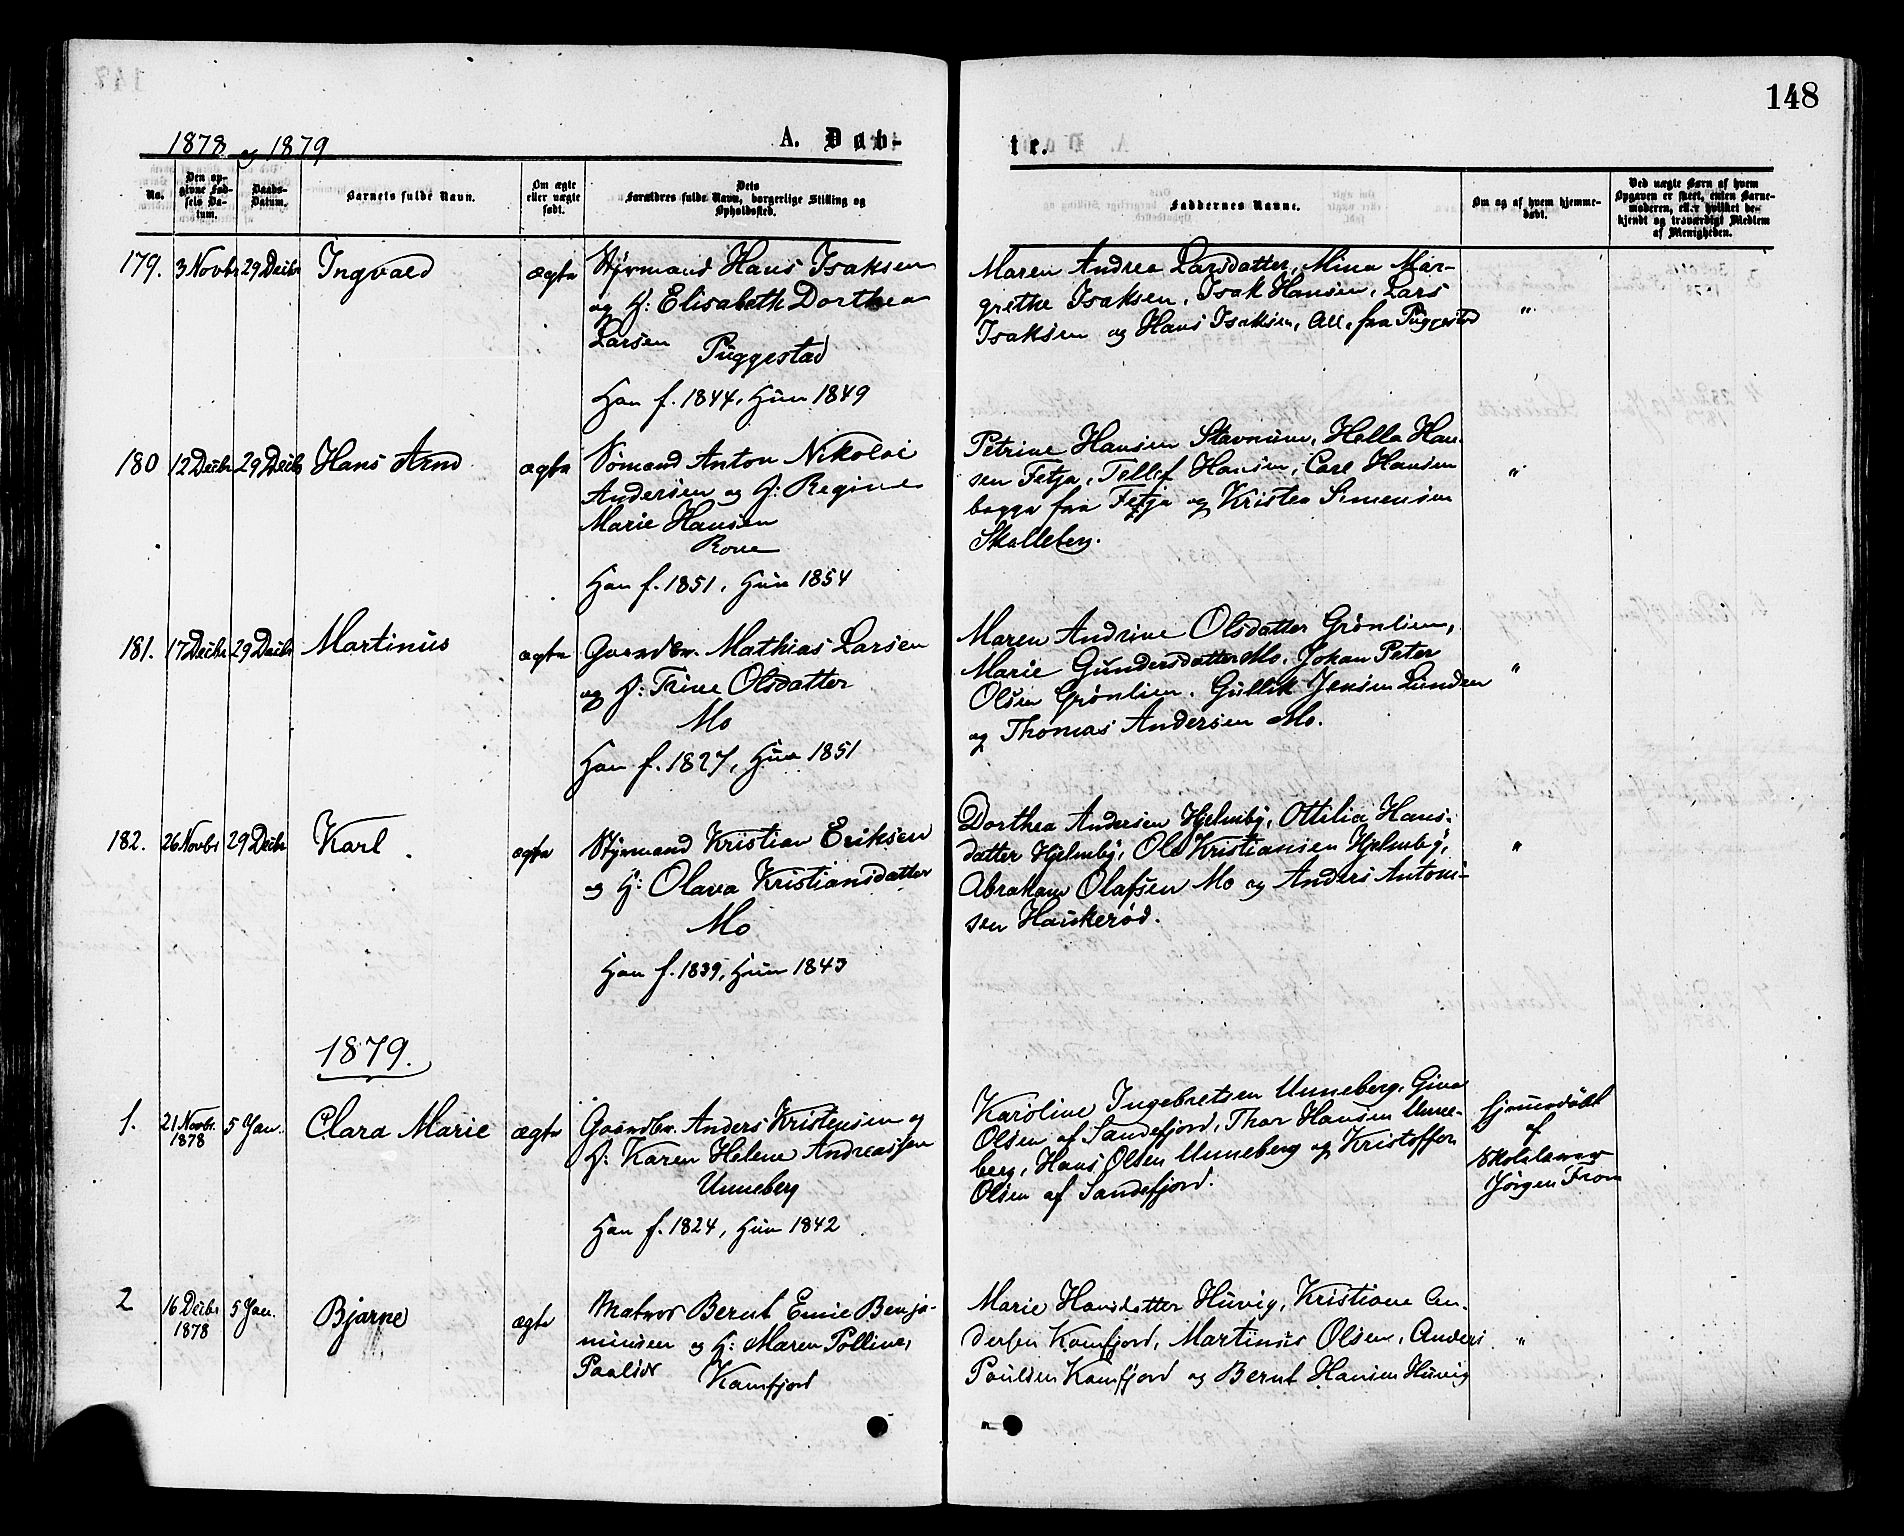 148
1878 og 1879
A. Døb-
te.
No.
Den op-
givne Fød-
sels Da-
tum.
Daabs-
Datum.
Barnets fulde Navn.
Om ægte
eller uægte
født.
Dets
Forældres fulde Navn, borgerlige Stilling og
Opholdssted.
Faddernes Navne.
Om og af hvem hjemme-
døbt.
Ved uægte Børn af hvem
Opgaven er skeet, enten Barne-
moderen, eller hvilket be-
kjendt og troværdigt Medlem
af Menigheden.
179. 3 Novbr 29 Decbr Ingvald ægte Styrmand Hans Isaksen
og H: Elisabeth Dorthea
Larsen
Puggestad
Han f. 1844, Hun 1849
Maren Andrea Larsdatter, Mina Mar-
grethe Isaksen, Isak Hansen, Lars
Isaksen og Hans Isaksen, All. fra Puggestad "
180 12 Decbr 29 Decbr Hans Arnd ægte Sømand Anton Nikolai
Andersen og H: Regine
Marie Hansen
Rove
Han f. 1851, Hun 1854
Petrine Hansen Stavnum, Hella Han-
sen Fetja, Tellef Hansen, Carl Hansen
begge fra Fetja og Kristen Simensen
Skalleberg. "
181. 17 Decbr 29 Decbr Martinus ægte Gaardbr. Mathias Larsen
og H: Trine Olsdatter
Mo
Han f. 1827, Hun 1851
Maren Andrine Olsdatter Grønlien,
Marie Gundersdatter Mo, Johan Peter
Olsen Grønlien, Gullik Jensen Lunden
og Thomas Andersen Mo. "
182. 26 Novbr 29 Decbr Karl ægte Styrmand Kristian Eriksen
og H: Olava Kristiansdatter
Mo
Han f. 1839, Hun 1843
Dorthea Andersen Hjelmby, Ottilia Hans-
datter Hjelmby, Ole Kristiansen Hjelmby,
Abraham Olafsen Mo og Anders Antoni-
sen Haukerød. "
1879.
1. 21 Novbr. 1878 5 Jan. Clara Marie ægte Gaardbr. Anders Kristensen og
H: Karen Helene Andreassen
Unneberg
Han f. 1824, Hun 1842
Karoline Ingebretsen Unneberg, Gina
Olsen af Sandefjord, Thor Hansen Unne-
berg, Hans Olsen Unneberg og Kristoffer
Olsen af Sandefjord.
Hjemmedøbt
af
Skolelærer
Jørgen From
2 16 Decbr 1878 5 Jan. Bjarne ægte Matros Bernt Emil Benja-
minsen og H: Maren Polline
Kamfjord
Marie Hansdatter Huvig, Kristiane An-
dersen Kamfjord, Martinus Olsen, Anders
Paulsen Kamfjord og Bernt Hansen Huvig "